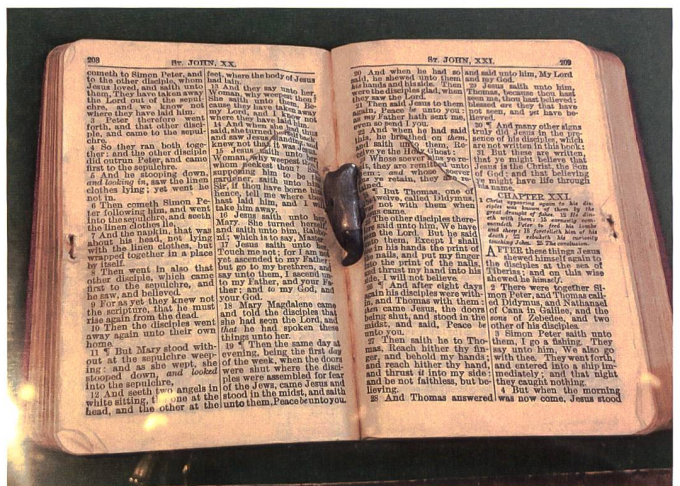 208
ST. JOHN, XX.
cometh to Simon Peter, and
to the other disciple, whom
Jesus loved, and saith unto
them, They have taken away
the Lord out of the sepul-
chre, and we know not
where they have laid him.
3 Peter therefore went
forth, and that other disci-
ple, and came to the sepul-
chre.
4 So they ran both toge-
ther: and the other disciple
did outrun Peter, and came
first to the sepulchre.
5 And he stooping down,
and looking in, saw the linen
clothes lying; yet went he
not in.
6 Then cometh Simon Pe-
ter following him, and went
into the sepulchre, and seeth
the linen clothes lie,
7 And the napkin, that was
about his head, not lying
with the linen clothes, but
wrapped together in a place
by itself.
8 Then went in also that
other disciple, which came
first to the sepulchre, and
he saw, and believed.
9 For as yet they knew not
the scripture, that he must
rise again from the dead.
10 Then the disciples went
away again unto their own
home.
11 ¶ But Mary stood with-
out at the sepulchre weep-
ing: and as she wept, she
stooped down, and looked
into the sepulchre,
12 And seeth two angels in
white sitting, the one at the
head, and the other at the
feet, where the body of Jesus
had lain.
13 And they say unto her,
Woman, why weepest thou?
She saith unto them, Be-
cause they have taken away
my Lord, and I know not
where they have laid him.
14 And when she had thus
said, she turned herself back,
and saw Jesus standing, and
knew not that it was Jesus.
15 Jesus saith unto her,
Woman, why weepest thou?
whom seekest thou? She,
supposing him to be the
gardener, saith unto him,
Sir, if thou have borne him
hence, tell me where thou
hast laid him, and I will
take him away.
16 Jesus saith unto her,
Mary. She turned herself,
and saith unto him, Rabbo-
ni; which is to say, Master.
17 Jesus saith unto her,
Touch me not; for I am not
yet ascended to my Father:
but go to my brethren, and
say unto them, I ascend unto
my Father, and your Fa-
ther; and to my God, and
your God.
18 Mary Magdalene came
and told the disciples that
she had seen the Lord, and
that he had spoken these
things unto her.
19 ¶ Then the same day at
evening, being the first day
of the week, when the doors
were shut where the disci-
ples were assembled for fear
of the Jews, came Jesus and
stood in the midst, and saith
unto them, Peace be unto you.
ST. JOHN, XXI.
209
20 And when he had so
said, he shewed unto them
his hands and his side. Then
were the disciples glad, when
they saw the Lord.
21 Then said Jesus to them
again, Peace be unto you:
as my Father hath sent me,
even so send I you.
22 And when he had said
this, he breathed on them,
and saith unto them, Re-
ceive ye the Holy Ghost:
23 Whose soever sins ye re-
mit, they are remitted unto
them; and whose soever
sins ye retain, they are re-
tained.
¶ But Thomas, one of
twelve, called Didymus,
not with them when
Jesus came.
The other disciples there-
said unto him, We have
the Lord. But he said
them, Except I shall
in his hands the print of
nails, and put my finger
the print of the nails,
and thrust my hand into his
side, I will not believe.
26 ¶ And after eight days
again his disciples were with-
in, and Thomas with them:
then came Jesus, the doors
being shut, and stood in the
midst, and said, Peace be
unto you.
27 Then saith he to Tho-
mas, Reach hither thy fin-
ger, and behold my hands;
and reach hither thy hand,
and thrust it into my side:
and be not faithless, but be-
lieving.
28 And Thomas answered
and said unto him, My Lord
and my God.
29 Jesus saith unto him,
Thomas, because thou hast
seen me, thou hast believed:
blessed are they that have
not seen, and yet have be-
lieved.
30 ¶ And many other signs
truly did Jesus in the pre-
sence of his disciples, which
are not written in this book:
31 But these are written,
that ye might believe that
Jesus is the Christ, the Son
of God; and that believing
ye might have life through
his name.
CHAPTER XXI.
1 Christ appearing again to his dis-
ciples was known of them by the
great draught of fishes. 12 He din-
eth with them: 15 earnestly com-
mandeth Peter to feed his lambs
and sheep: 18 foretelleth him of his
death: 22 rebuketh his curiosity
touching John. 25 The conclusion.
AFTER these things Jesus
shewed himself again to
the disciples at the sea of
Tiberias; and on this wise
shewed he himself.
2 There were together Si-
mon Peter, and Thomas call-
ed Didymus, and Nathanael
of Cana in Galilee, and the
sons of Zebedee, and two
other of his disciples.
3 Simon Peter saith unto
them, I go a fishing. They
say unto him, We also go
with thee. They went forth,
and entered into a ship im-
mediately; and that night
they caught nothing.
4 But when the morning
was now come, Jesus stood